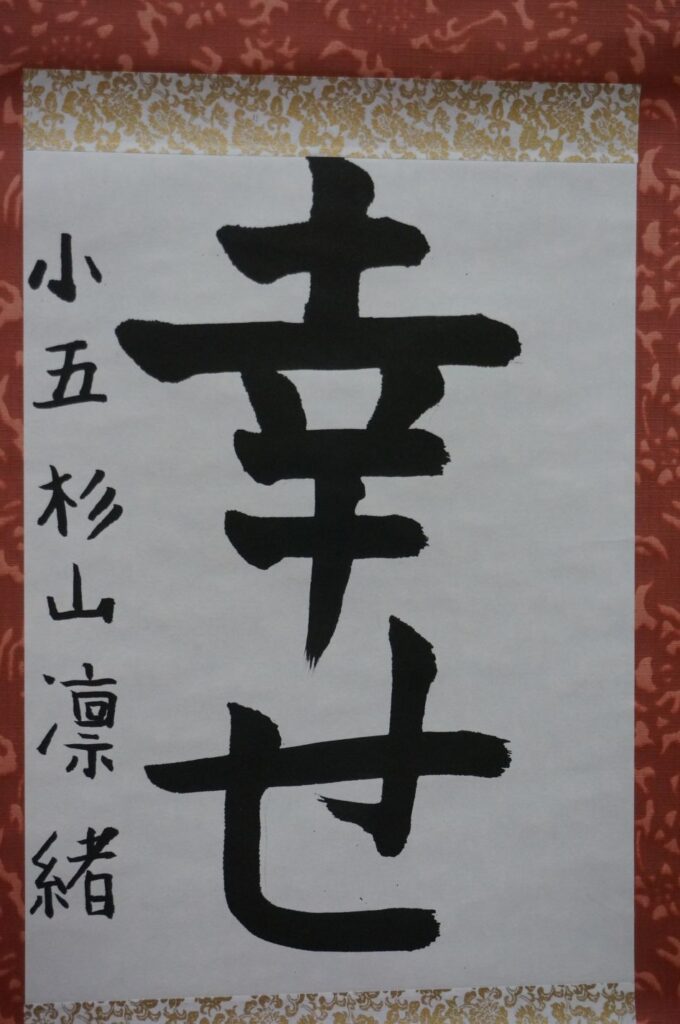 幸せ
小五 杉山凛緒